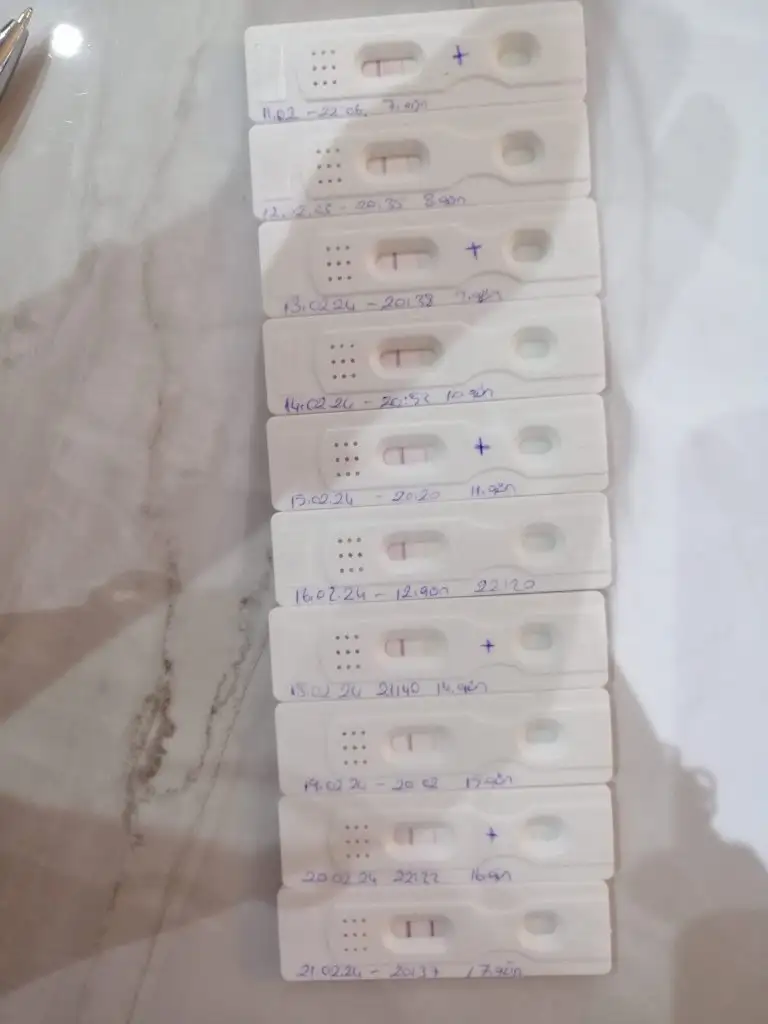 11.02 - 22.06. 7.gün
+
20.35 8.gün
13.02.24 - 20:38 9.gün
+
14.02.24 - 10.gün
15.02.24 - 20:20 11.gün
+
16.02.24 - 12.gün 22:20
02 24 21:40 14.gün
+
19.02 24 - 20 02 15.gün
20 02 24 22:22 16.gün
+
21.02.24 - 20:37 17.gün